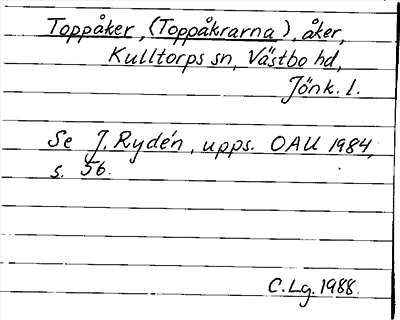 Toppåker, (Toppåkrarna), åker,
Kulltorps sn, Västbo hd,
Jönk. l.
Se J. Rydén, upps. OAU 1984,
s. 56.
C. Lg. 1988.